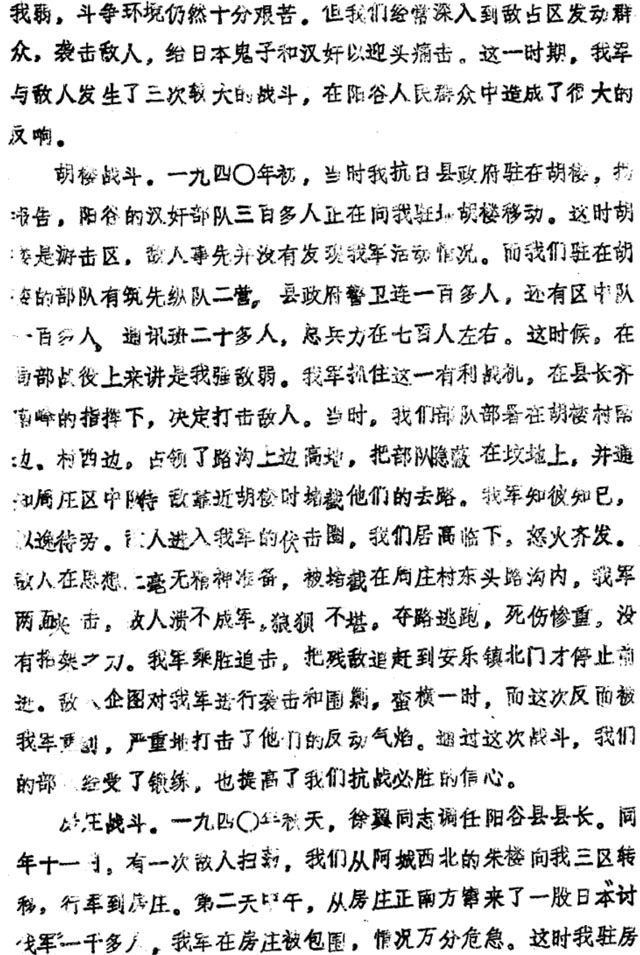 我弱，斗争环境仍然十分艰苦。但我们经常深入到敌占区发动群
众，袭击敌人，给日本鬼子和汉奸以迎头痛击。这一时期，我军
与敌人发生了三次较大的战斗，在阳谷人民群众中造成了很大的
反响。
胡楼战斗。一九四〇年初，当时我抗日县政府驻在胡楼，据
报告，阳谷的汉奸部队三百多人正在向我驻地胡楼移动。这时胡
楼是游击区，敌人事先并没有发现我军活动情况。而我们驻在胡
楼的部队有筑先纵队二营，县政府警卫连一百多人，还有区中队
一百多人，通讯班二十多人，总兵力在七百人左右。这时候，在
局部战役上来讲是我强敌弱。我军抓住这一有利战机，在县长齐
峰的指挥下，决定打击敌人。当时，我们部队部署在胡楼村南
边。村西边，占领了路沟上边高地，把部队隐蔽在坟地上，并通
知周庄区中队待敌靠近胡楼时堵截他们的去路。我军知彼知己，
以逸待劳。敌人进入我军的伏击圈，我们居高临下，怒火齐发。
敌人在思想上毫无精神准备，被堵截在周庄村东头路沟内，我军
两面夹击，敌人溃不成军，狼狈不堪，夺路逃跑，死伤惨重，没
有招架之力。我军乘胜追击，把残敌追赶到安乐镇北门才停止前
进。敌人企图对我军进行袭击和围剿，蛮横一时，而这次反而被
我军重创，严重地打击了他们的反动气焰。通过这次战斗，我们
的部 经受了锻练，也提高了我们抗战必胜的信心。
庄战斗。一九四〇年秋天，徐翼同志调任阳谷县县长。同
年十一月，有一次敌人扫荡，我们从阿城西北的朱楼向我三区转
移，行军到房庄。第二天中午，从房庄正南方窜来了一股日本"讨
伐军"一千多人，我军在房庄被包围，情况万分危急。这时我驻房